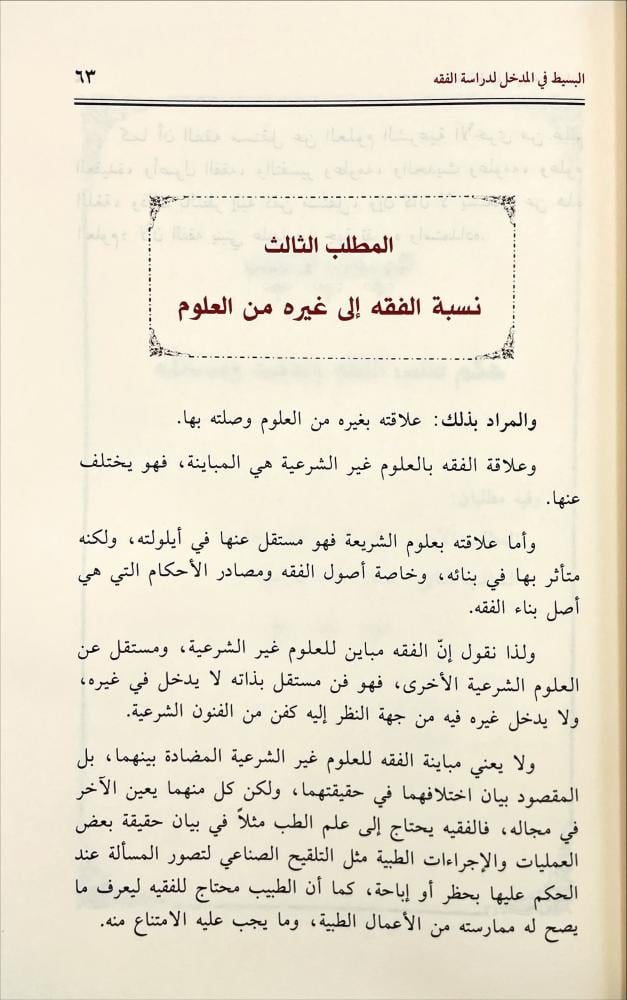 البسيط في المدخل لدراسة الفقه ٦٣
المطلب الثالث
نسبة الفقه إلى غيره من العلوم
والمراد بذلك: علاقته بغيره من العلوم وصلته بها.
وعلاقة الفقه بالعلوم غير الشرعية هي المباينة، فهو يختلف
عنها.
وأما علاقته بعلوم الشريعة فهو مستقل عنها في أيلولته، ولكنه
متأثر بها في بنائه، وخاصة أصول الفقه ومصادر الأحكام التي هي
أصل بناء الفقه.
ولذا نقول إنّ الفقه مباين للعلوم غير الشرعية، ومستقل عن
العلوم الشرعية الأخرى، فهو فن مستقل بذاته لا يدخل في غيره،
ولا يدخل غيره فيه من جهة النظر إليه كفن من الفنون الشرعية.
ولا يعني مباينة الفقه للعلوم غير الشرعية المضادة بينهما، بل
المقصود بيان اختلافهما في حقيقتهما، ولكن كل منهما يعين الآخر
في مجاله، فالفقيه يحتاج إلى علم الطب مثلاً في بيان حقيقة بعض
العمليات والإجراءات الطبية مثل التلقيح الصناعي لتصور المسألة عند
الحكم عليها بحظر أو إباحة، كما أن الطبيب محتاج للفقيه ليعرف ما
يصح له ممارسته من الأعمال الطبية، وما يجب عليه الامتناع منه.